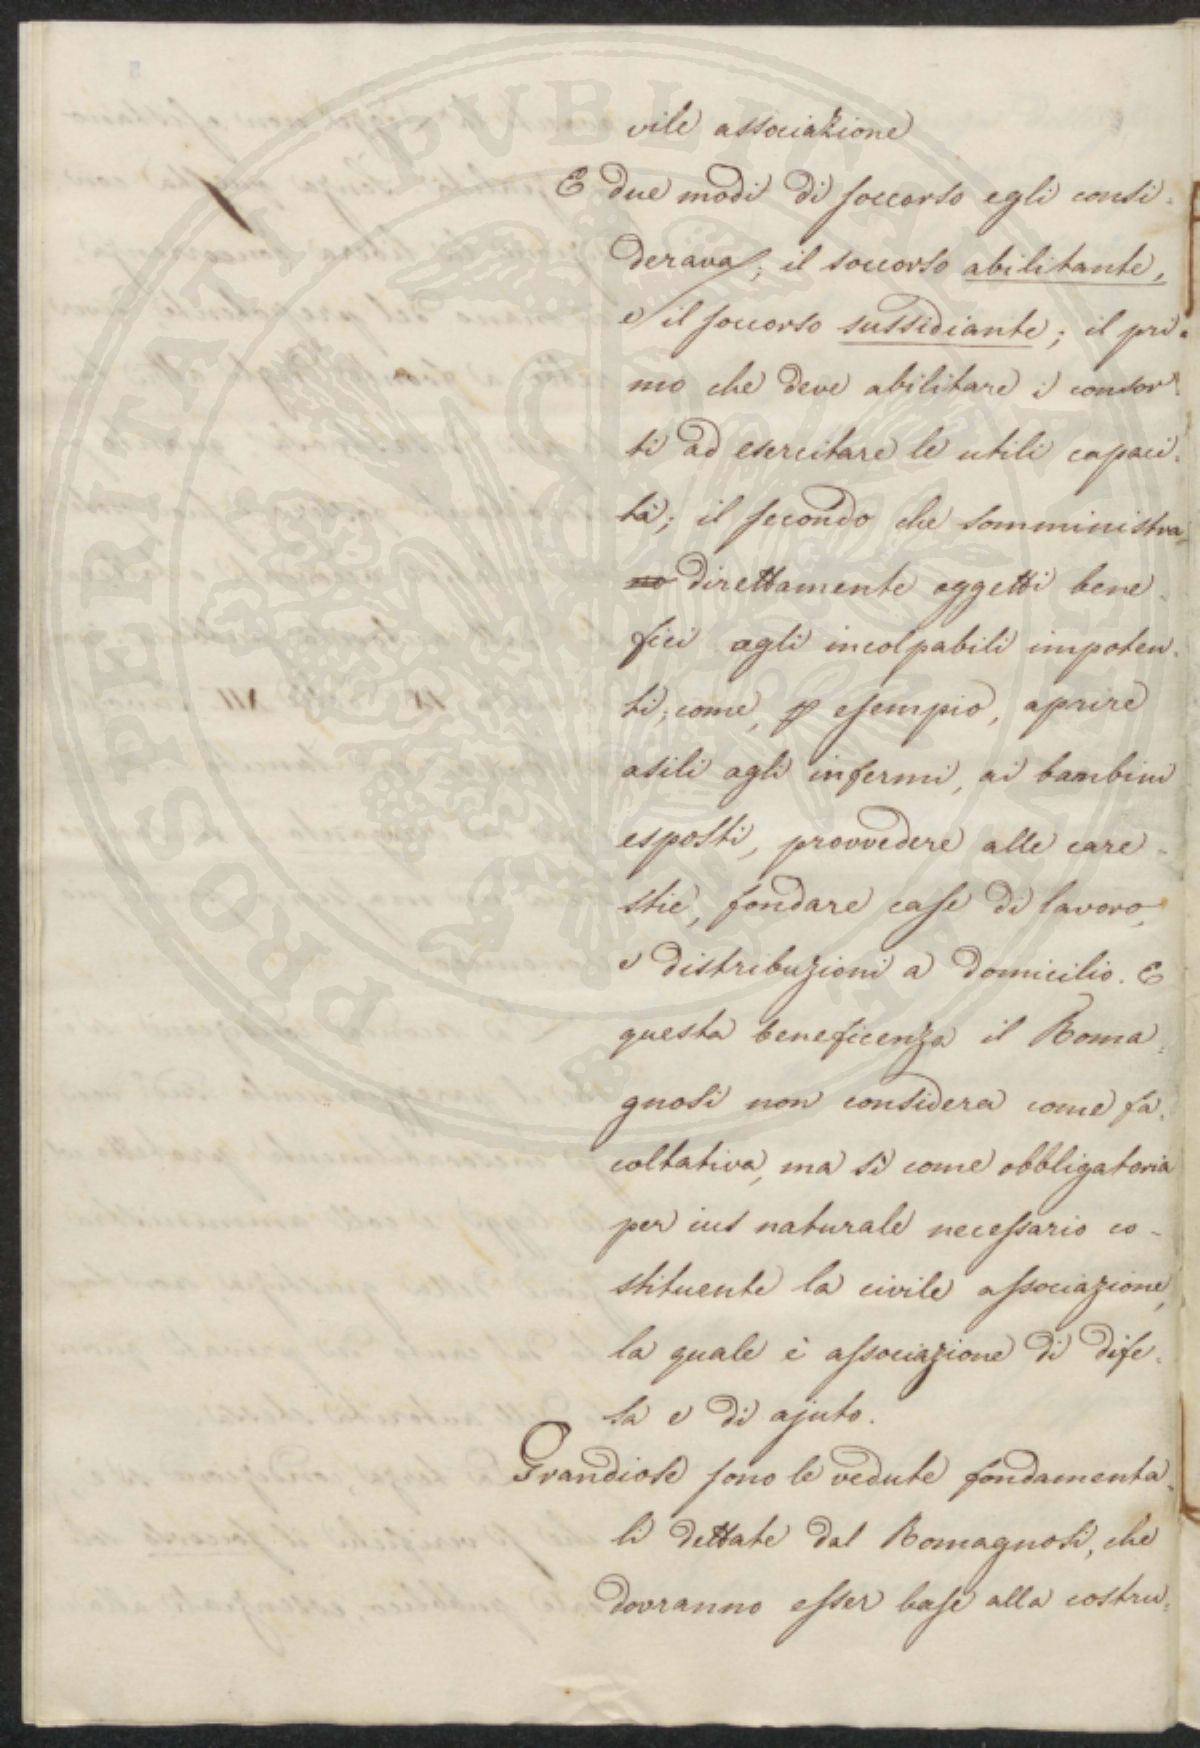 vile associazione
E due modi di soccorso egli consi-
derava; il soccorso abilitante,
e il soccorso sussidiante; il pri-
mo che deve abilitare i consor-
ti ad esercitare le utili capaci-
tà; il secondo che somministra
no direttamente oggetti bene-
fici agli incolpabili impoten-
ti; come, p esempio, aprire
asili agli infermi, ai bambini
esposti, provvedere alle care-
stie, fondare case di lavoro,
e distribuzioni a domicilio. E
questa beneficenza il Roma-
gnosi non considera come fa-
coltativa, ma sì come obbligatoria
per ius naturale necessario co-
stituente la civile associazione,
la quale è associazione di dife-
sa e di ajuto.
Grandiose sono le vedute fondamenta-
li dettate dal Romagnosi, che
dovranno esser base alla costru-
PROSPERITATI PVBLICAE